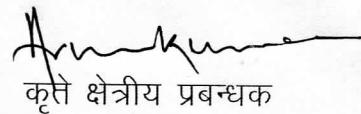 कृते क्षेत्रीय प्रबन्धक